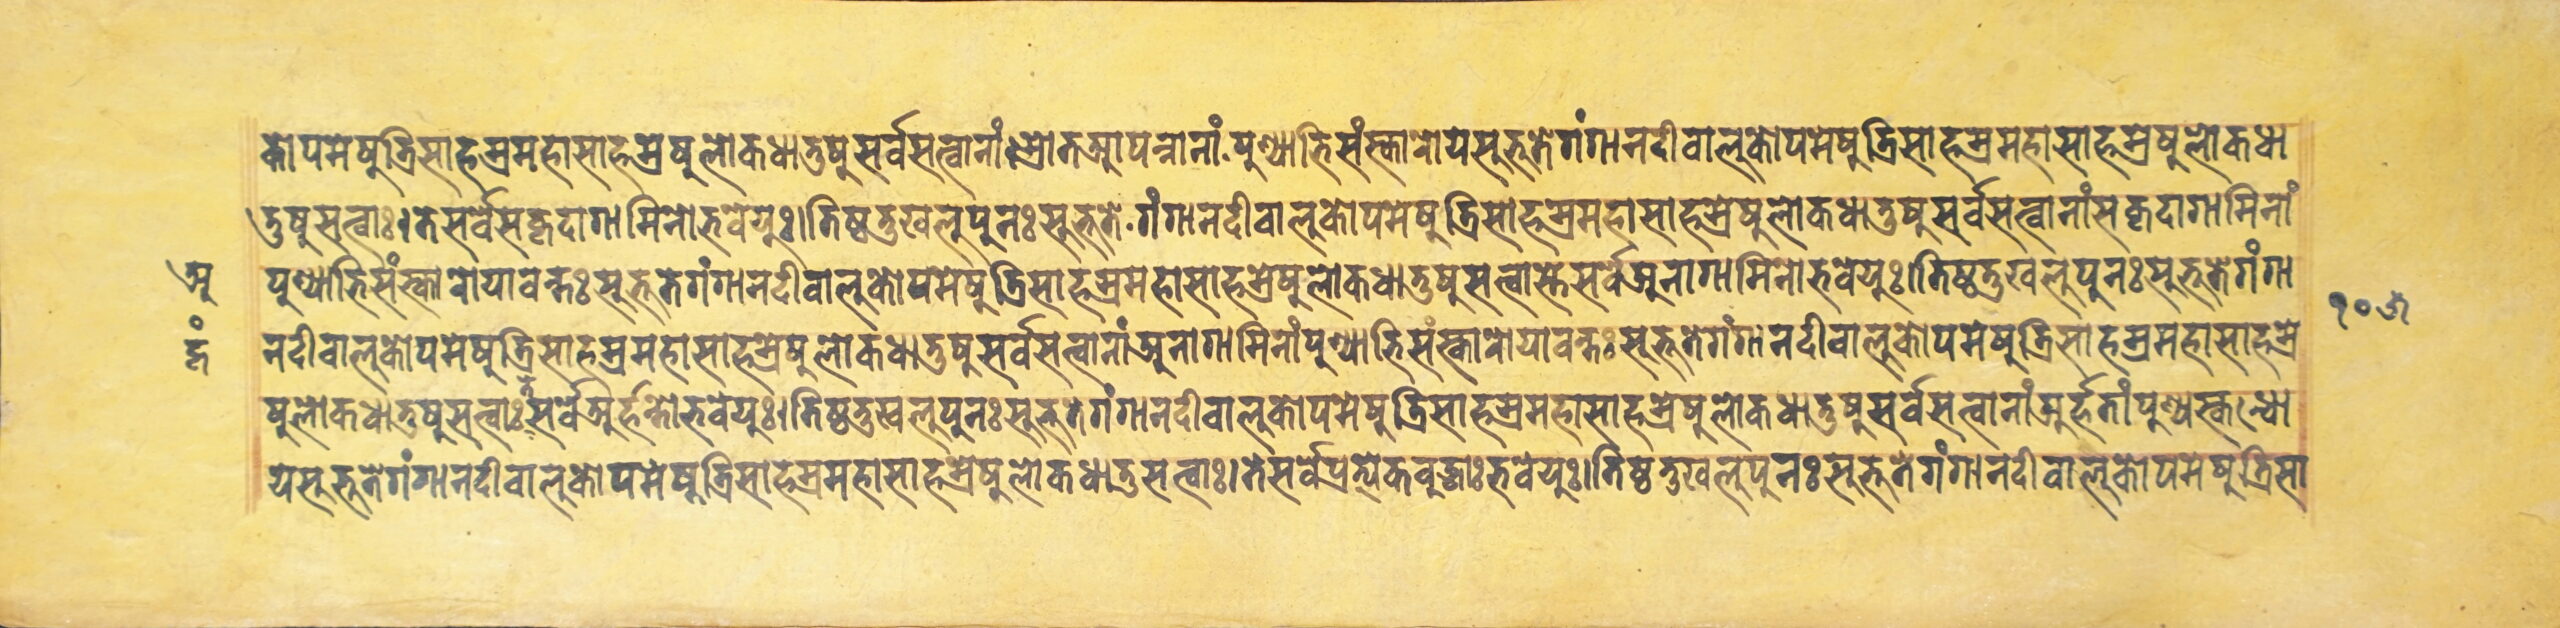 कोपमेषुत्रिसाहस्रमहासाहस्रेषुलोकधातुषुसर्वसत्वानां।स्रोतआपन्नानां पुण्याभिसंस्कारोयेसुभूतेगंगानदीवालुकोपमेषुत्रिसाहस्रमहासाहस्रेषुलोकधा
तुषुसत्वाः।तेसर्वेसकृदागामिनोभवेयुः।तिष्ठतुखलुपुनःसुभूते गंगानदीवालुकोपमेषुत्रिसाहस्रमहासाहस्रेषुलोकधातुषुसर्वसत्वानांसकृदागामिनां
अ
पुण्याभिसंस्कारोयावन्तःसुभूतेगंगानदीवालुकोपमेषुत्रिसाहस्रमहासाहस्रेषुलोकधातुषुसत्वास्तेसर्वेअनागामिनोभवेयुः।तिष्ठतुखलुपुनःसुभूतेगंगा
नदीवालुकोपमेषुत्रिसाहस्रमहासाहस्रेषुलोकधातुषुसर्वसत्वानांअनागामिनांपुण्याभिसंस्कारोयावन्तःसुभूतेगंगानदीवालुकोपमेषुत्रिसाहस्रमहासाहस्रे
षुलोकधातुषुसत्वाःतेसर्वेअर्हन्तोभवेयुः।तिष्ठतुखलुपुनःसुभूतेगंगानदीवालुकोपमेषुत्रिसाहस्रमहासाहस्रेषुलोकधातुषुसर्वसत्वानांअर्हतांपुण्यस्कन्धो
येसुभूतेगंगानदीवालुकोपमेषुत्रिसाहस्रमहासाहस्रेषुलोकधातुसत्वाः।तेसर्वेप्रत्येकबुद्धाःभवेयुः।तिष्ठतुखलुपुनःसुभूतेगंगानदीवालुकोपमेषुत्रिसा